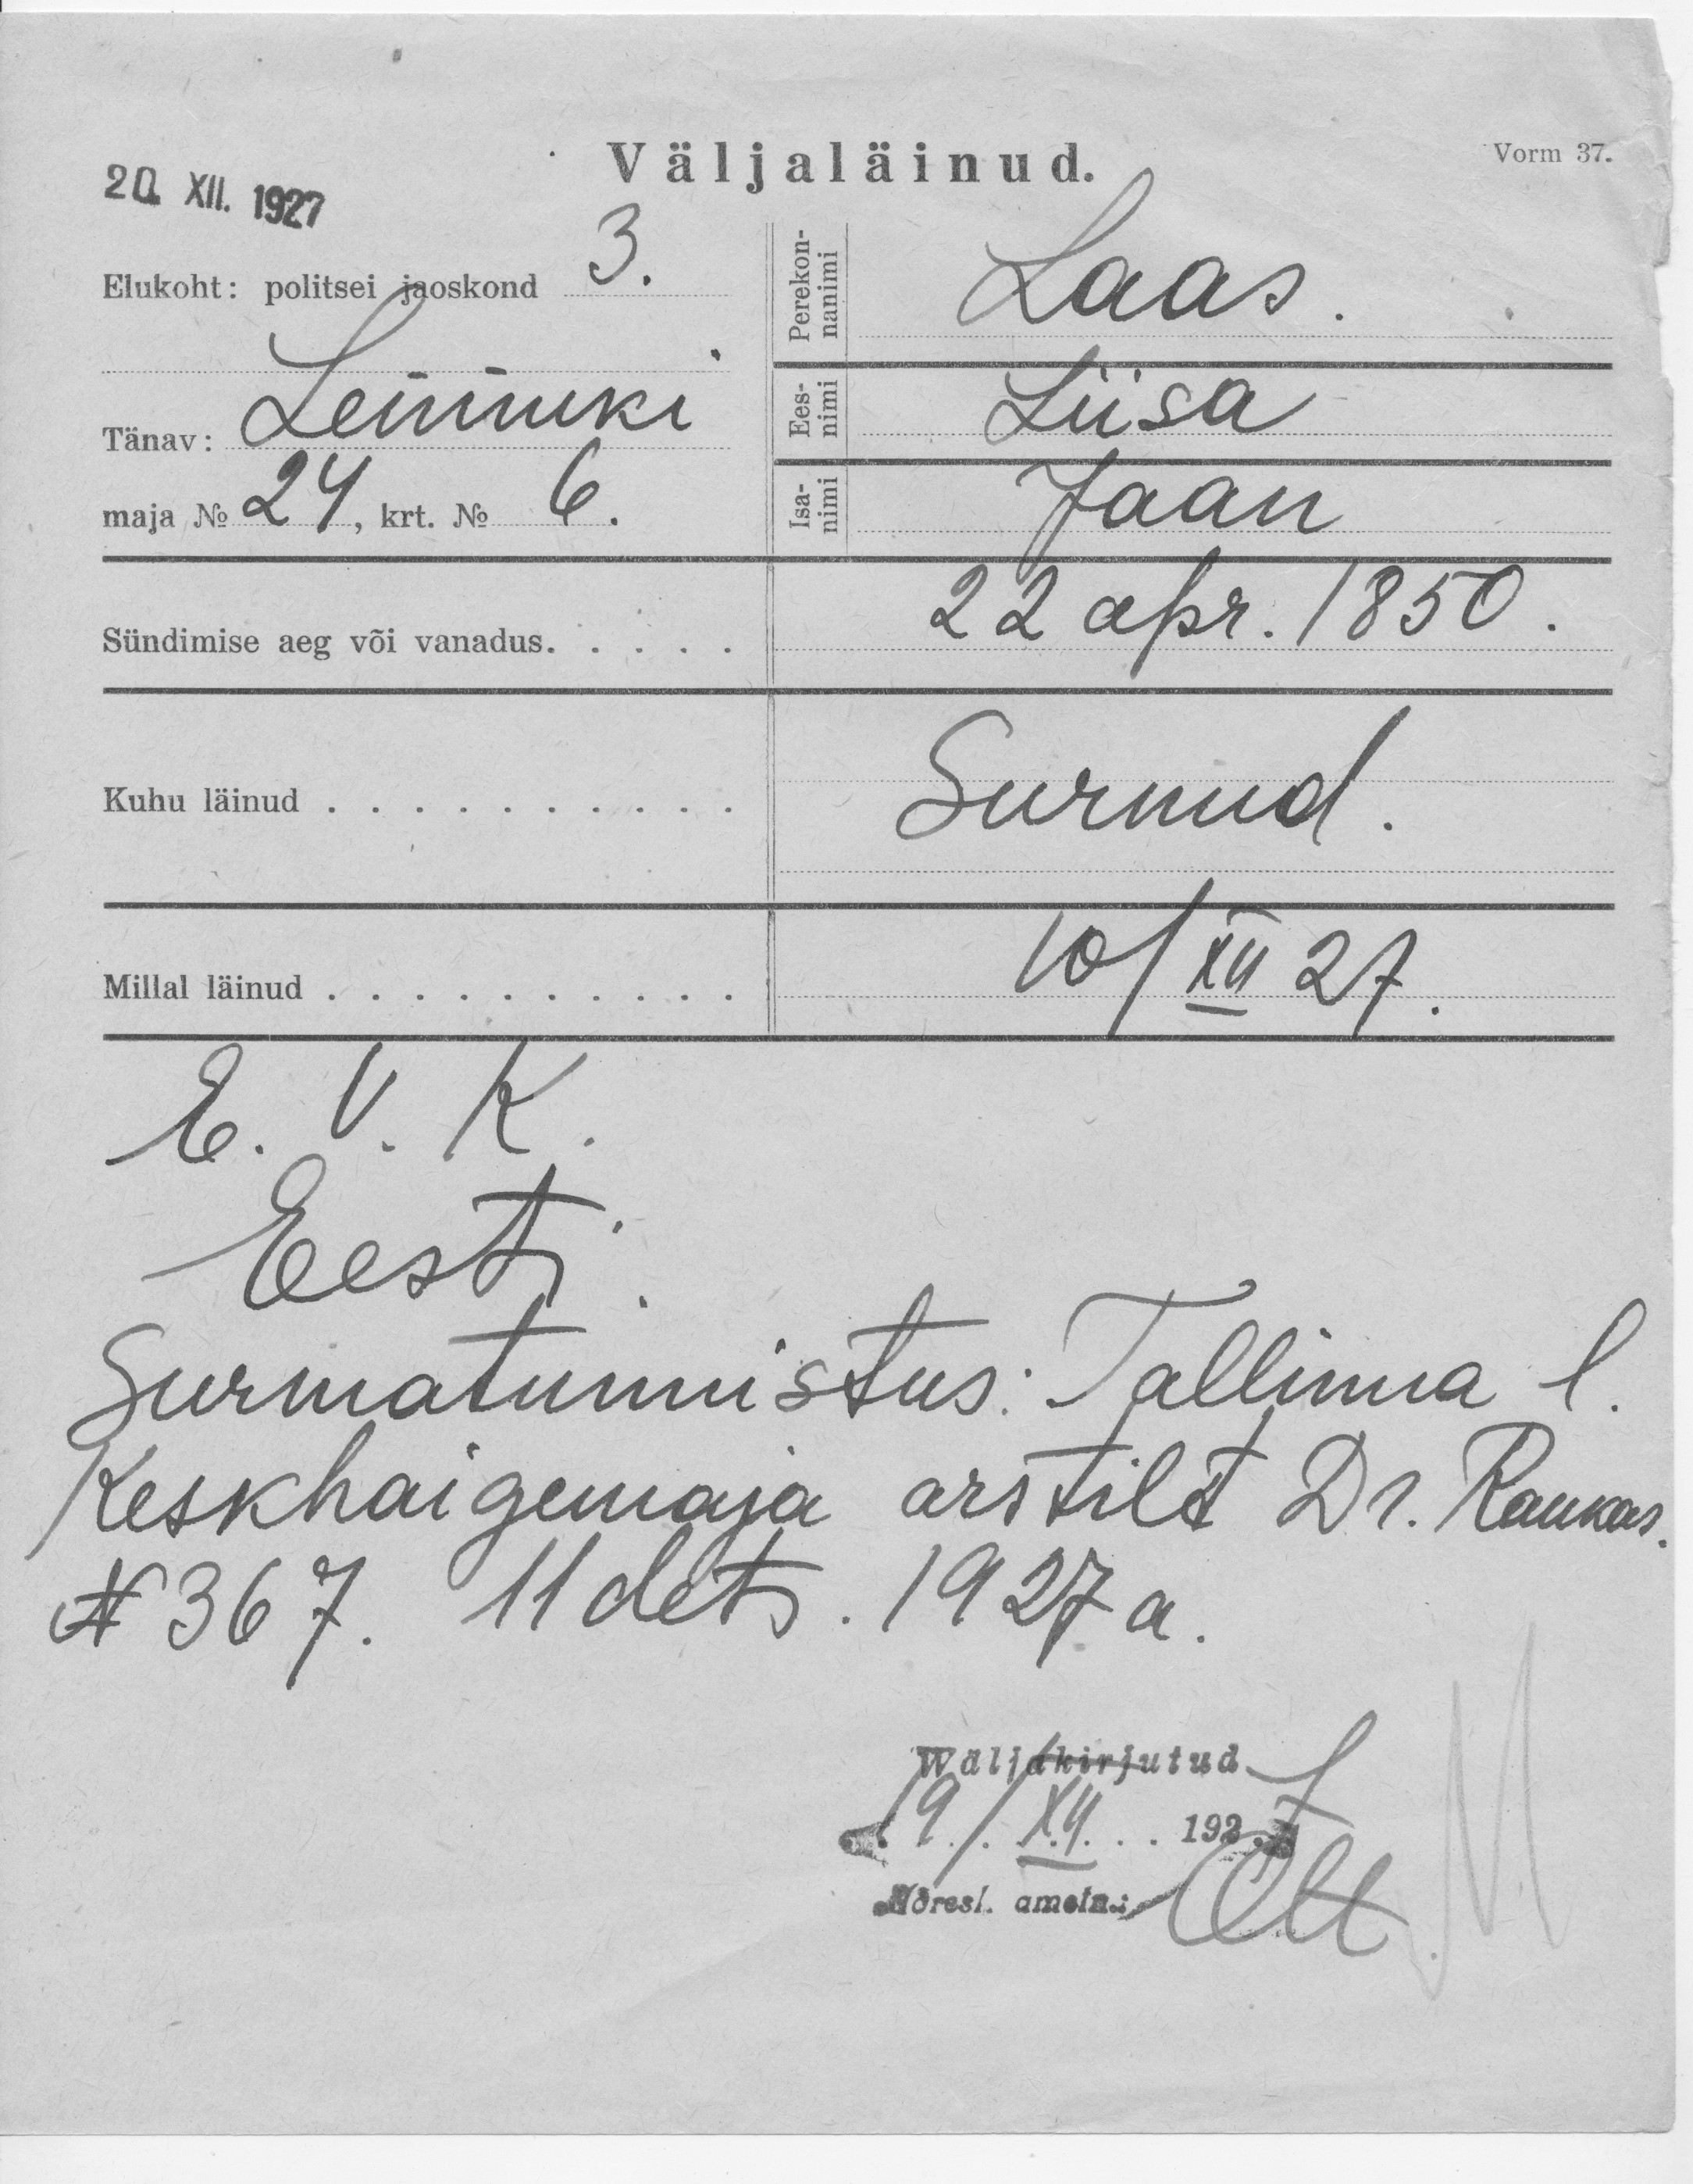 Väljaläinud.
Vorm 37.
20. XII. 1927
Elukoht: politsei jaoskond 3.
Tänav: Lemmiki
maja № 24, krt. № 6.
Perekon-
nanimi
Laas.
Ees-
nimi
Liisa
Isa-
nimi
Jaan
Sündimise aeg või vanadus. . . . . . 22 apr. 1850.
Kuhu läinud . . . . . . . . . . Surnud.
Millal läinud . . . . . . . . . . 10/XII 27.
E. V. K.
Eesti.
Surmatunnistus: Tallinna l.
Keskhaigemaja arstilt Dr. Raukas.
№ 367. 11 dets. 1927 a.
Wäljakirjutud
19./. XII. . . 1927
Adresl. ametn.: Ott
M